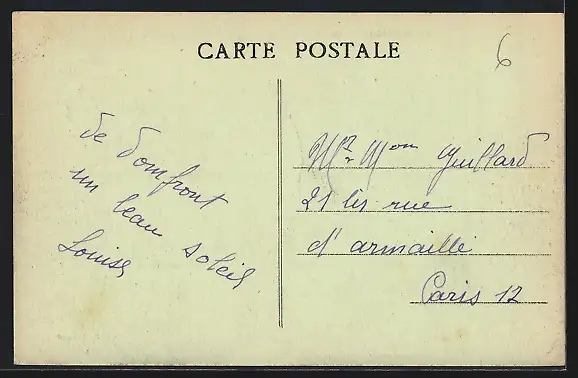 CARTE POSTALE
6
de Domfront
un beau soleil
Louise
Mr Mon Guillard
21 bis rue
d'armaillé
Paris 12